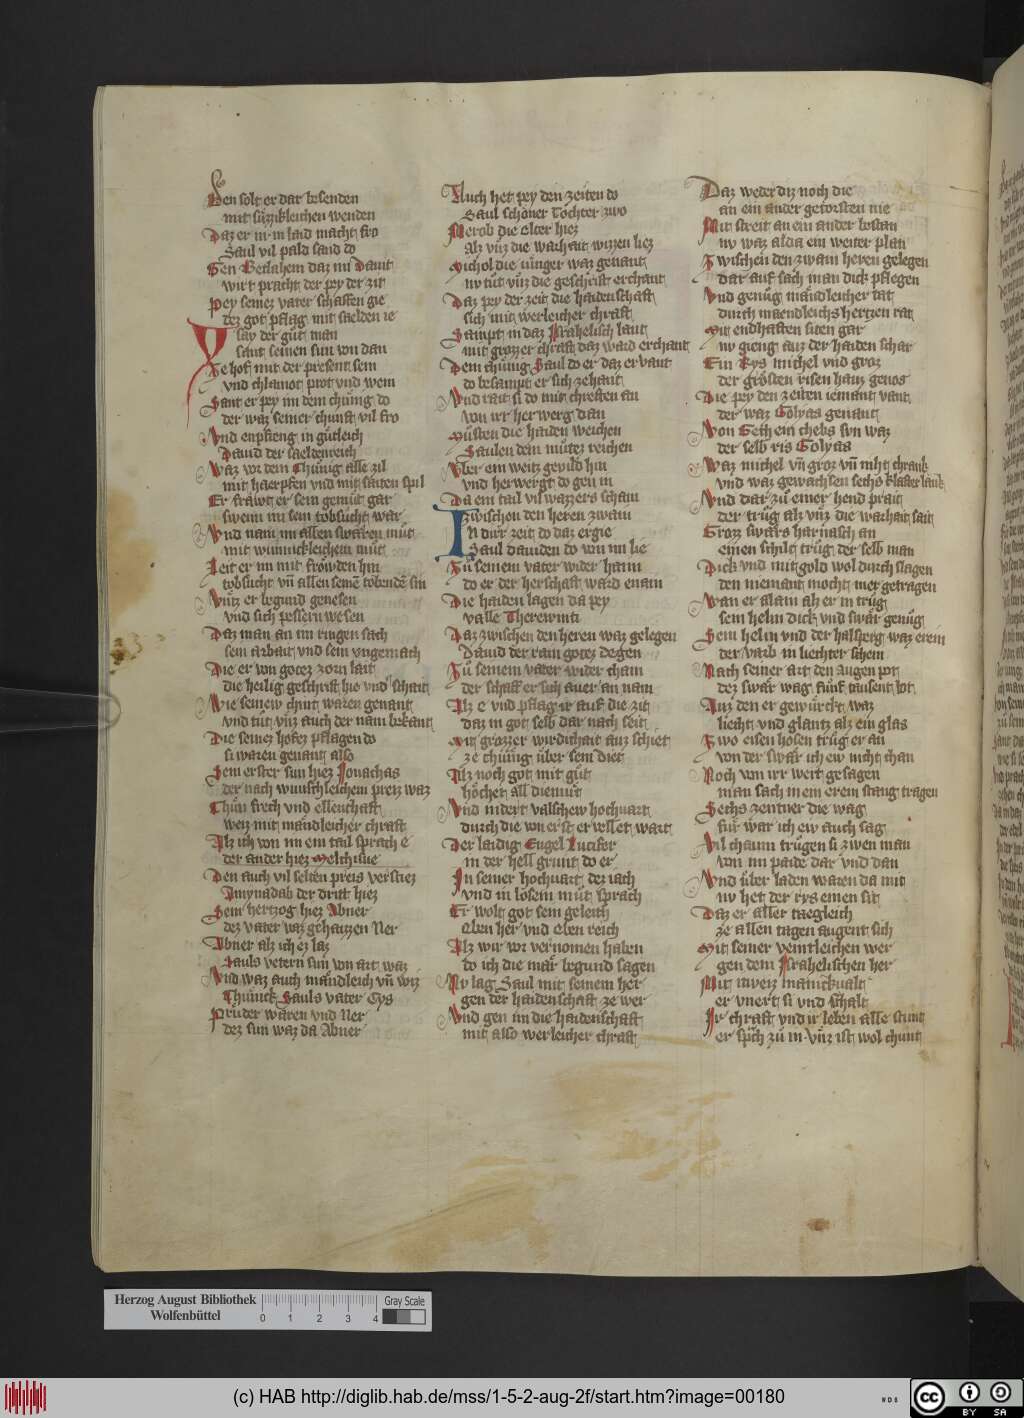 Den solt er dar besenden
mit süzzikleichen wenden
Daz er in in laid macht fro
Saul vil pald sand do
Gen Betlahem daz im Dauit
wirt pracht der pey der zit
Pey seinez vater schaffen gie
dez got pflag mit saelden ie
Ysay der gůt man
sant seinen sun von dan
Ze hof mit der present sein
vnd chlainot prot vnd wein
Sant er pey im dem chünig do
der waz seiner chunft vil fro
Vnd enpfieng in gütleich
Dauid der saeldenreich
Waz vor dem Chünig alle zil
mit haerpfen vnd mit saiten spil
Er fräwt er sein gemüt gar
swenn im sein tobsucht war
Vnd nam im allen swaren můt
mit wunnickleichem můt
Leit er im mit fröwden hin
tobsucht vn̄ allen seinē tobendē sin
Vntz er begund genesen
vnd sich pessern wesen
Daz man an im ringen sach
sein arbait vnd sein vngemach
Die er von gotez zorn lait
die heilig geschrift hie vnd schait
Wie seinew chint waren genant
vnd tüt vnz auch der nam bekant
Die seinez hofez pflagen do
si waren genant also
Sein erster sun hiez Jonathas
der nach wunschleichem preiz waz
Chün frech vnd ellenchaft
weiz mit mändleicher chraft
Alz ich von im ein tail sprach e
der ander hiez Melchisue
Den auch vil selten preis verstiez
Amynadab der dritt hiez
Sein hertzog hiez Abner
dez vater waz gehaizzen Ner
Abner alz ich ez laz
Sauls vetern sun von art waz
Vnd waz auch mändleich vn̄ wiz
Chünick Sauls vater Cys
Prüder waren vnd Ner
dez sun waz da Abner
Auch het pey den zeiten do
Saul schöner Tochter zwo
Merob die elter hiez
Alz vnz die warhait wizzen liez
Michol die iünger waz genant
nv tüt vnz die geschrift erchant
Daz pey der zeit die haidenschaft
sich mit werleicher chraft
Sampt in daz Israhelisch lant
mit grozzer chraft daz ward erchant
Dem chünig Saul do er daz ervant
do besampt er sich zehant
Vnd rait si do mit chreften an
von irr herwerg dan
Müsten die haiden weichen
Saulen dem mütez reichen
Vber ein weitz gevild hin
vnd herwergt do gen in
Da ein tail vil wazzers scham
zwischen den heren zwain
In dirr zeit do daz ergie
Saul dauiden do von im lie
Zů seinem vater wider haim
do er der herschaft ward enain
Die haiden lagen da pey
valle Therewinti
Daz zwischen den heren waz gelegen
Dauid der rain gotez degen
Zů seinem vater wider cham
der schaff er sich auer an nam
Alz e vnd pflag ir auf die zit
daz in got selb dar nach seit
Mit grozzer wirdichait auz schiet
ze chünig über sein diet
Alz noch got mit güt
höchet all diemüt
Vnd nidert valschew hochuart
durch die von erst er vellet wart
Der laidig Engel Lucifer
in der hell grunt do er
In seiner hochuart dez iach
vnd in lösem müt sprach
Er wolt got sein geleich
eben her vnd eben reich
Alz wir vor vernomen haben
do ich die mär begund sagen
Nv lag Saul mit seinem her
gen der haidenschaft ze wer
Vnd gen im die haidenschaft
mit also werleicher chraft
Daz weder diz noch die
an ein ander getorsten nie
Mit streit an ein ander bestan
nv waz alda ein weiter plan
Zwischen den zwain heren gelegen
dar auf sach man dick pflegen
Vnd genüg mändleicher tat
durch maendleichs hertzen rat
Mit endhaften siten gar
nv gieng auz der haiden schar
Ein Rys michel vnd groz
der grösten risen hauz genos
Die pey den zeiten iemant vant
der waz Golyas genant
Von Geth ein chebs svn waz
der selb ris Golyas
Waz michel vn̄ groz vn̄ niht chrank
vnd waz gewachsen sechs klaffter lank
Vnd dar zů einer hend prait
der trüg alz vnz die warhait sait
Grozz swärs harnasch an
einen schilt trüg der selb man
Dick vnd mit gold wol durch slagen
den niemant mocht mer getragen
Wan er alain alz er in trüg
sein helm dick vnd swär genüg
Sein helm vnd der halsperg waz erein
der varb in liechter schein
Nach seiner art den augen pot
dez swär wag fünf tausent lot
Auz den er gewürckt waz
liecht vnd glantz alz ein glas
Zwo eisen hosen trüg er an
von der swär ich ew nicht chan
Noch von irr wert gesagen
man sach in ein erein stang tragen
Sechs zentner die wag
für war ich ew auch sag
Vil chaum trügen si zwen man
von im paide dar vnd dan
Vnd über laden waren da mit
nv het der rys einen sit
Daz er aller taegleich
ze allen tagen augent sich
Mit seiner veintleichen wer
gen dem Israhelischen her
Mit itweiz manickualt
er vnert si vnd schalt
Ir chraft vnd ir leben alle stunt
er sp̄ch zů in vnz ist wol chunt
Herzog August Bibliothek
Wolfenbüttel
0 1 2 3 4
Gray Scale
(c) HAB http://diglib.hab.de/mss/1-5-2-aug-2f/start.htm?image=00180
WDB
cc BY SA